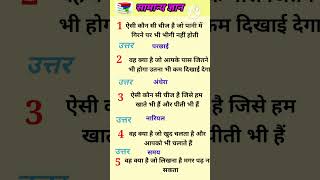 सामान्य ज्ञान
1 ऐसी कौन सी चीज है जो पानी में
गिरने पर भी भीगी नहीं होती
उत्तर परछाई
2 वह क्या है जो आपके पास जितने
भी होगा उतना भी कम दिखाई देगा
उत्तर अंधेरा
3 ऐसी कौन सी चीज है जिसे हम
खाते भी हैं और पीती भी हैं
उत्तर नारियल
4 वह क्या है जो खुद चलता है और
आपको भी चलाते हैं
उत्तर समय
5 वह क्या है जो लिखना है मगर पढ़ न
सकता